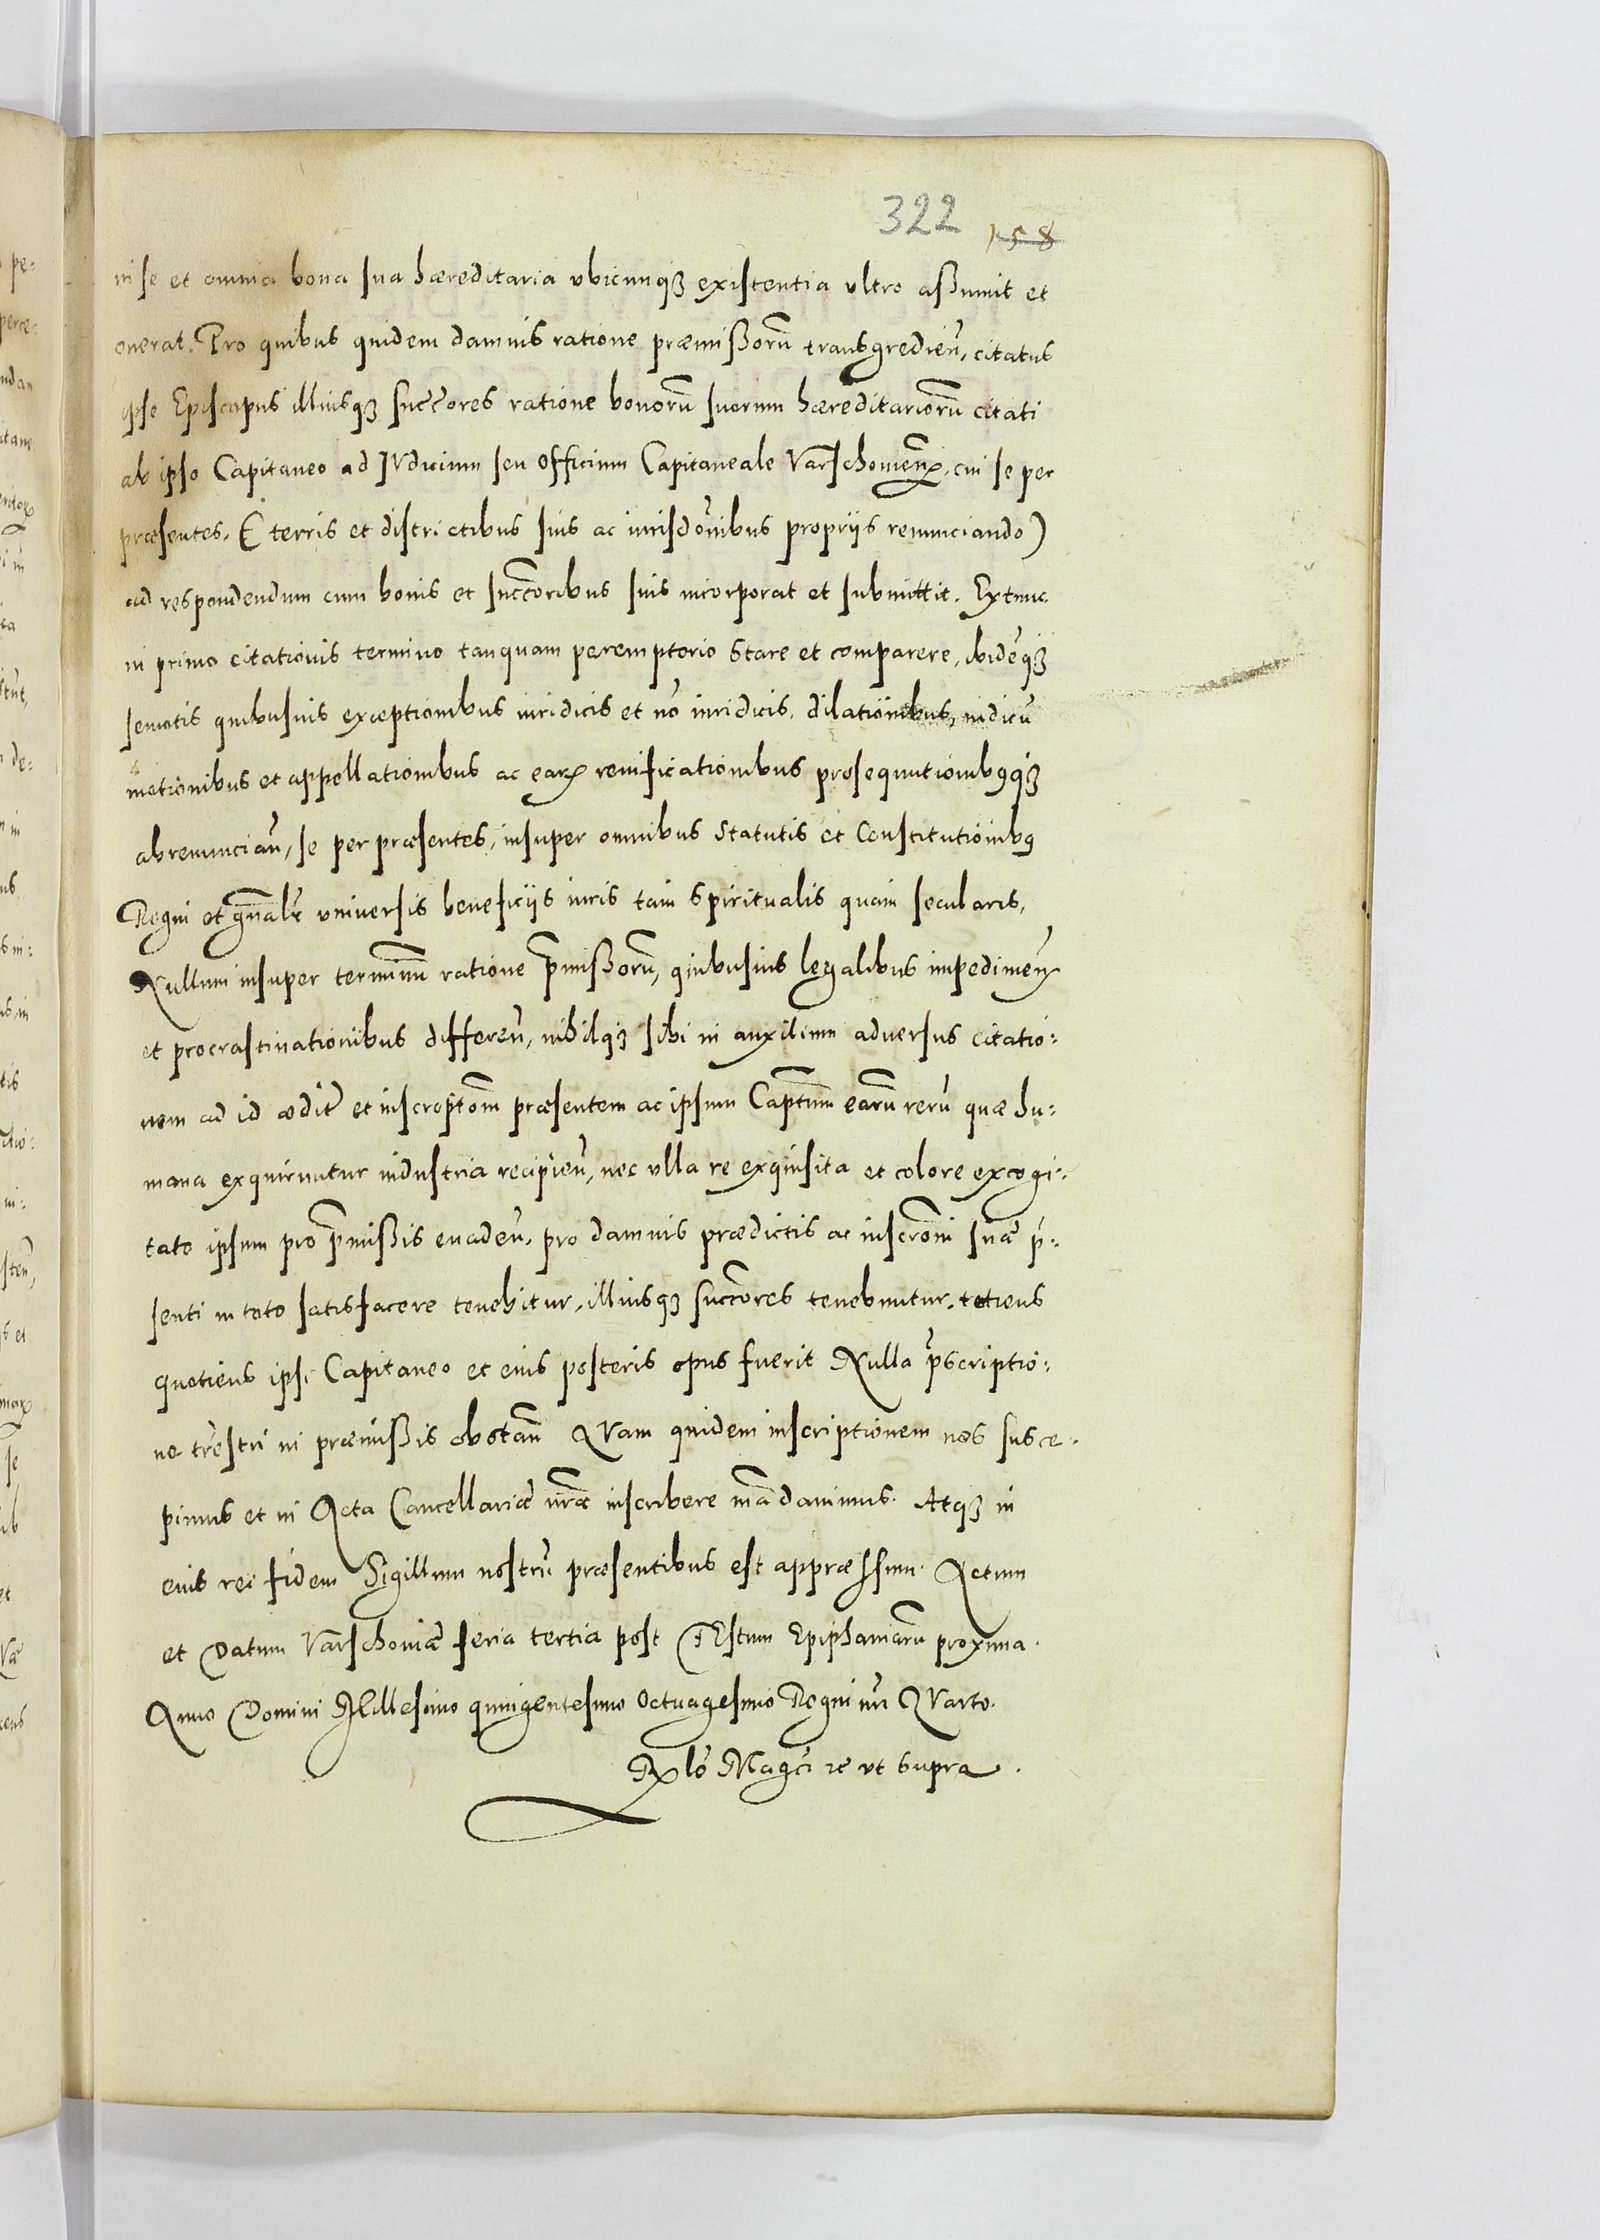 322 158
in se et omnia bona sua hæreditaria vbicunqꝫ existentia vltro aßumit et
onerat. Pro quibus quidem damnis ratione præmißorũ transgredieñ, citatus
ipse Episcopus illiusqꝫ succ̃ores ratione bonorũ suorum hæreditariorũ citati
ab ipso Capitaneo ad IVdicium seu Officium Capitaneale Varschouieñ, cui se per
præsentes, (E terris et districtibus suis ac iurisdõnibus propriis renunciando)
ad respondendum cum bonis et succ̃oribus suis incorporat et submittit. Ex tunc
in primo citationis termino tanquam peremptorio stare et comparere, ibidẽqꝫ
semotis quibusuis exceptionibus iuridicis et nõ iuridicis, dilationibus, iudicũ
motionibus et appellationibus ac eaꝝ reuificationibus prosequutionibꝰqꝫ
abrenunciañ, se per præsentes, insuper omnibus Statutis et Constitutionibꝰ
Regni et gñalr̃ vniuersis beneficijs iuris tam spiritualis quam secularis,
Nullum insuper terminũ ratione p̃mißorũ, quibusuis legalibus impedimeñ
et procrastinationibus differeñ, nihilqꝫ sibi in auxilium aduersus citatio:
nem ad id ædit̃ et inscriptõm præsentem ac ipsum Capt̃num earũ rerũ quæ hu:
mana exquiruntur industria recipieñ, nec vlla re exquisita et colore excogi:
tato ipsum pro p̃mißis euadeñ, pro damnis prædictis ac inscrõni suæ p̃:
senti in toto satisfacere tenebitur, illiusqꝫ succ̃ores tenebuntur, totiens
quotiens ipsi Capitaneo et eius posteris opus fuerit Nulla p̃scriptio:
ne tr̃estri in præmißis obstañ QVam quidem inscriptionem nos susce:
pimus et in Acta Cancellariæ nr̃æ inscribere mãdauimus. Atqꝫ in
eius rei fidem Sigillum nostrũ præsentibus est appræssum. Actum
et Datum Varschouiæ feria tertia post FEstum Epiphaniarũ proxima.
Anno Domini Millesimo quingentesimo Octuagesimo Regni nr̃i QVarto.
Rlõ Magci ꝛc vt supra.